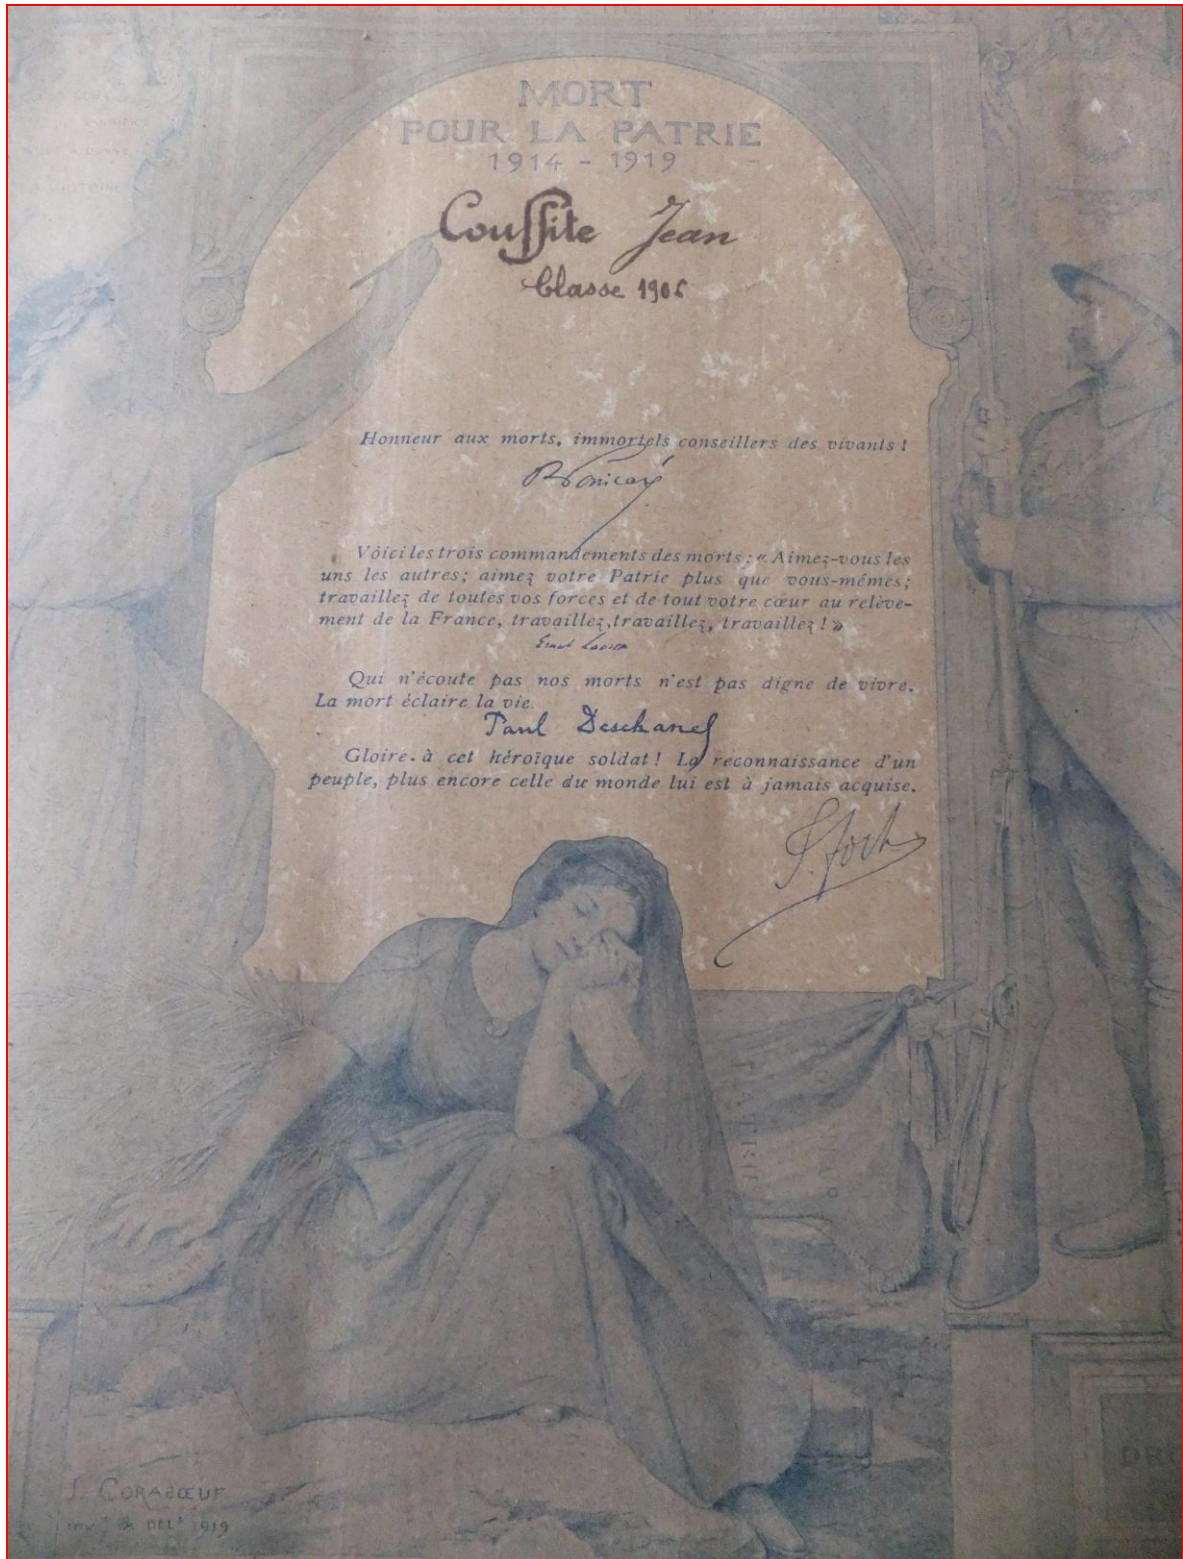 MORT
POUR LA PATRIE
1914 - 1919
Coussite Jean
Classe 1906
Honneur aux morts, immortels conseillers des vivants !
R Poincaré
Vöici les trois commandements des morts : « Aimez-vous les
uns les autres; aimez votre Patrie plus que vous-mêmes;
travaillez de toutes vos forces et de tout votre cœur au relève-
ment de la France, travaillez, travaillez, travaillez ! »
Ernest Lavisse
Qui n'écoute pas nos morts n'est pas digne de vivre.
La mort éclaire la vie.
Paul Deschanel
Gloire à cet héroïque soldat ! La reconnaissance d'un
peuple, plus encore celle du monde lui est à jamais acquise.
F. Foch
PATRIE
DRO
J. CORABŒUF
invt & DELt 1919